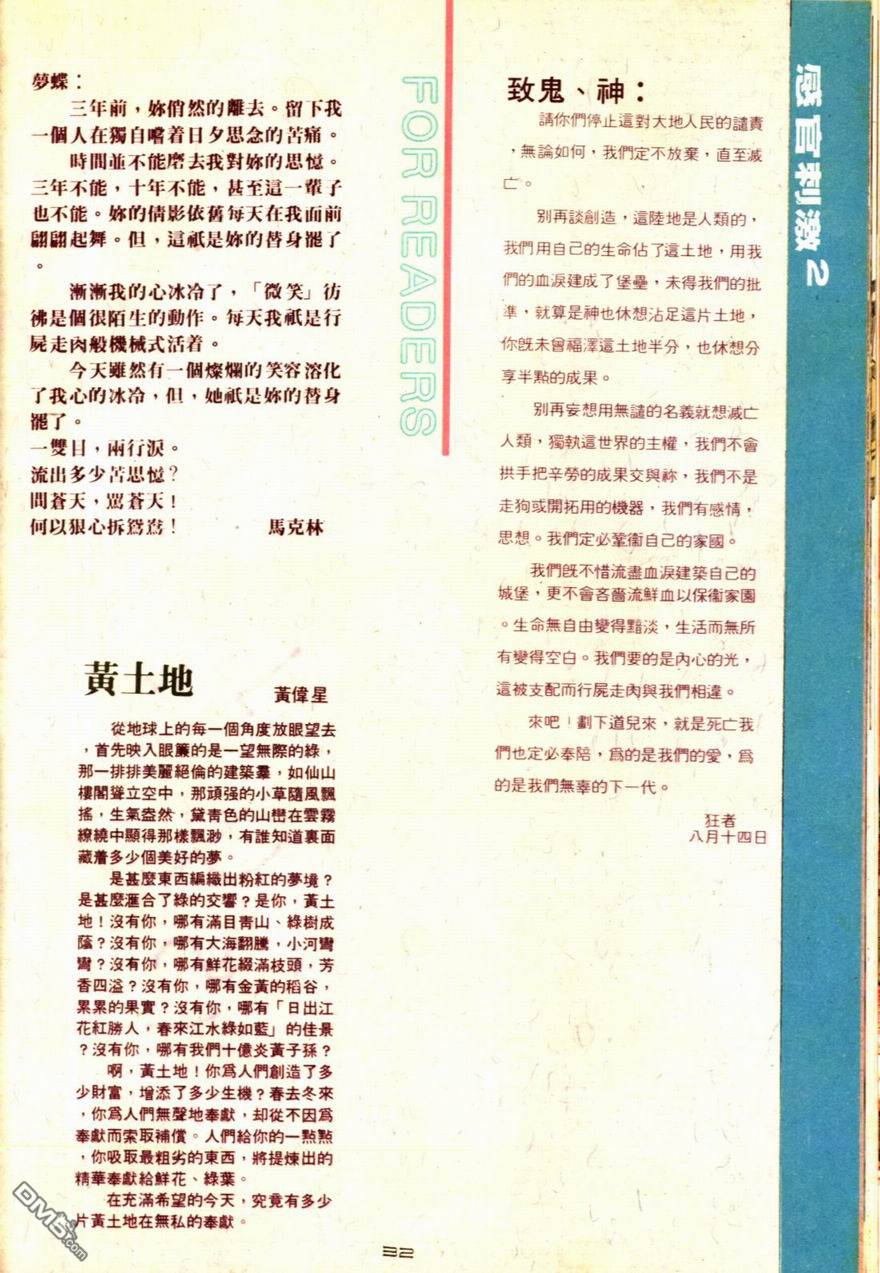 夢蝶：
三年前，妳俏然的離去。留下我
一個人在獨自嚐着日夕思念的苦痛。
時間並不能磨去我對妳的思憶。
三年不能，十年不能，甚至這一輩子
也不能。妳的倩影依舊每天在我面前
翩翩起舞。但，這祇是妳的替身罷了
。
漸漸我的心冰冷了，「微笑」彷
彿是個很陌生的動作。每天我祇是行
屍走肉般機械式活着。
今天雖然有一個燦爛的笑容溶化
了我心的冰冷，但，她祇是妳的替身
罷了。
一雙目，兩行淚。
流出多少苦思憶？
問蒼天，罵蒼天！
何以狠心拆鴛鴦！
馬克林
黃土地
黃偉星
從地球上的每一個角度放眼望去
，首先映入眼簾的是一望無際的綠，
那一排排美麗絕倫的建築羣，如仙山
樓閣聳立空中，那頑强的小草隨風飄
搖，生氣盎然，黛青色的山巒在雲霧
繚繞中顯得那樣飄渺，有誰知道裏面
藏着多少個美好的夢。
是甚麼東西編織出粉紅的夢境？
是甚麼滙合了綠的交響？是你，黃土
地！沒有你，哪有滿目青山、綠樹成
蔭？沒有你，哪有大海翻騰，小河彎
彎？沒有你，哪有鮮花綴滿枝頭，芳
香四溢？沒有你，哪有金黃的稻谷，
累累的果實？沒有你，哪有「日出江
花紅勝人，春來江水綠如藍」的佳景
？沒有你，哪有我們十億炎黃子孫？
啊，黃土地！你爲人們創造了多
少財富，增添了多少生機？春去冬來
，你爲人們無聲地奉獻，却從不因爲
奉獻而索取補償。人們給你的一點點
，你吸取最粗劣的東西，將提煉出的
精華奉獻給鮮花、綠葉。
在充滿希望的今天，究竟有多少
片黃土地在無私的奉獻。
FOR READERS
致鬼、神：
請你們停止這對大地人民的譴責
，無論如何，我們定不放棄，直至滅
亡。
別再談創造，這陸地是人類的，
我們用自己的生命佔了這土地，用我
們的血淚建成了堡壘，未得我們的批
準，就算是神也休想沾足這片土地，
你旣未曾福澤這土地半分，也休想分
享半點的成果。
別再妄想用無譴的名義就想滅亡
人類，獨執這世界的主權，我們不會
拱手把辛勞的成果交與祢，我們不是
走狗或開拓用的機器，我們有感情，
思想。我們定必鞏衞自己的家國。
我們旣不惜流盡血淚建築自己的
城堡，更不會吝嗇流鮮血以保衞家園
。生命無自由變得黯淡，生活而無所
有變得空白。我們要的是內心的光，
這被支配而行屍走肉與我們相違。
來吧！劃下道兒來，就是死亡我
們也定必奉陪，爲的是我們的愛，爲
的是我們無辜的下一代。
狂者
八月十四日
感官刺激2
32
DM5.com